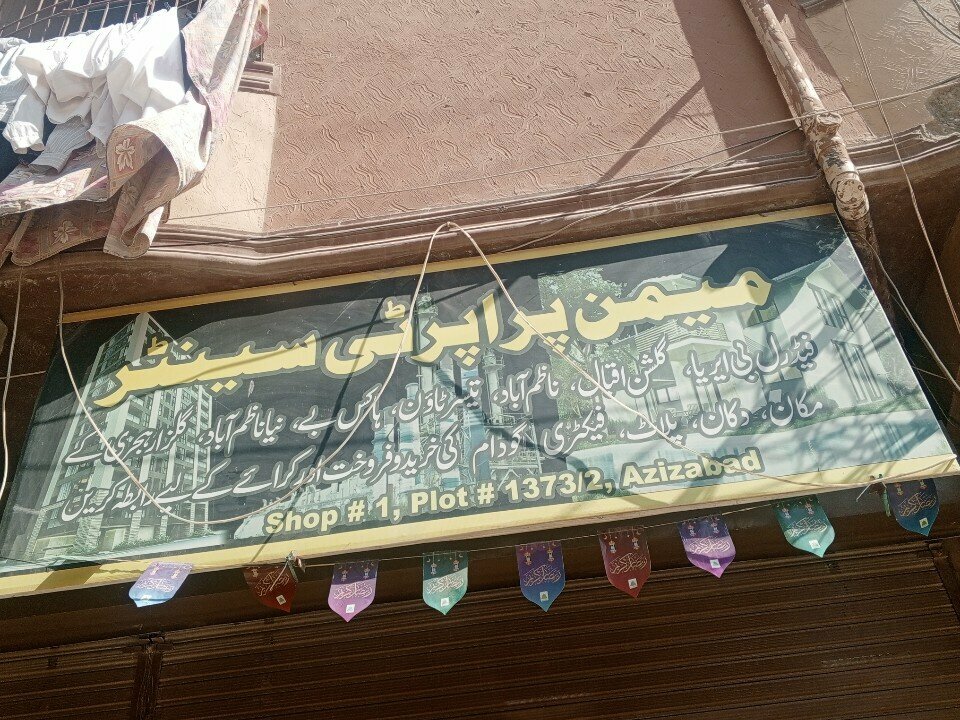 میمن پراپرٹی سینٹر
فیڈرل بی ایریا، گلشن اقبال، ناظم آباد، تیسر ٹاؤن، ہاکس بے، نیا ناظم آباد، گلزار ہجری کے
مکان، دکان، پلاٹ، فیکٹری، گودام کی خرید و فروخت اور کرائے کے لئے رابطہ کریں
Shop # 1, Plot # 1373/2, Azizabad